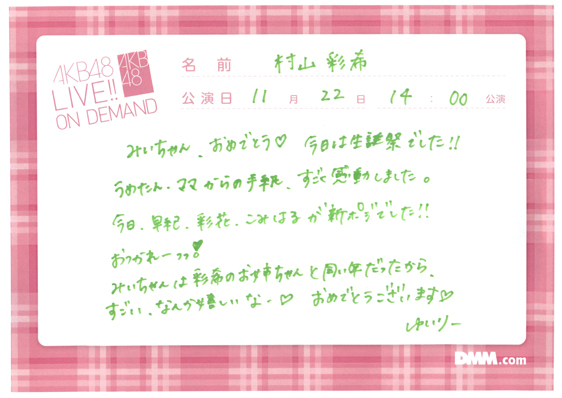 AKB48
LIVE!!
ON DEMAND
AKB
48
名前 村山彩希
公演日 11月22日14:00公演
みいちゃん、おめでとう♡ 今日は生誕祭でした!!
うめたん、ママからの手紙、すごく感動しました。
今日、早紀、彩花、こみはるが新ポジでした!!
おつかれーっっ♥!
みいちゃんは彩希のお姉ちゃんと同い年だったから、
すごい、なんか嬉しいなー♡ おめでとうございます♡
ゆいりー
DMM.com